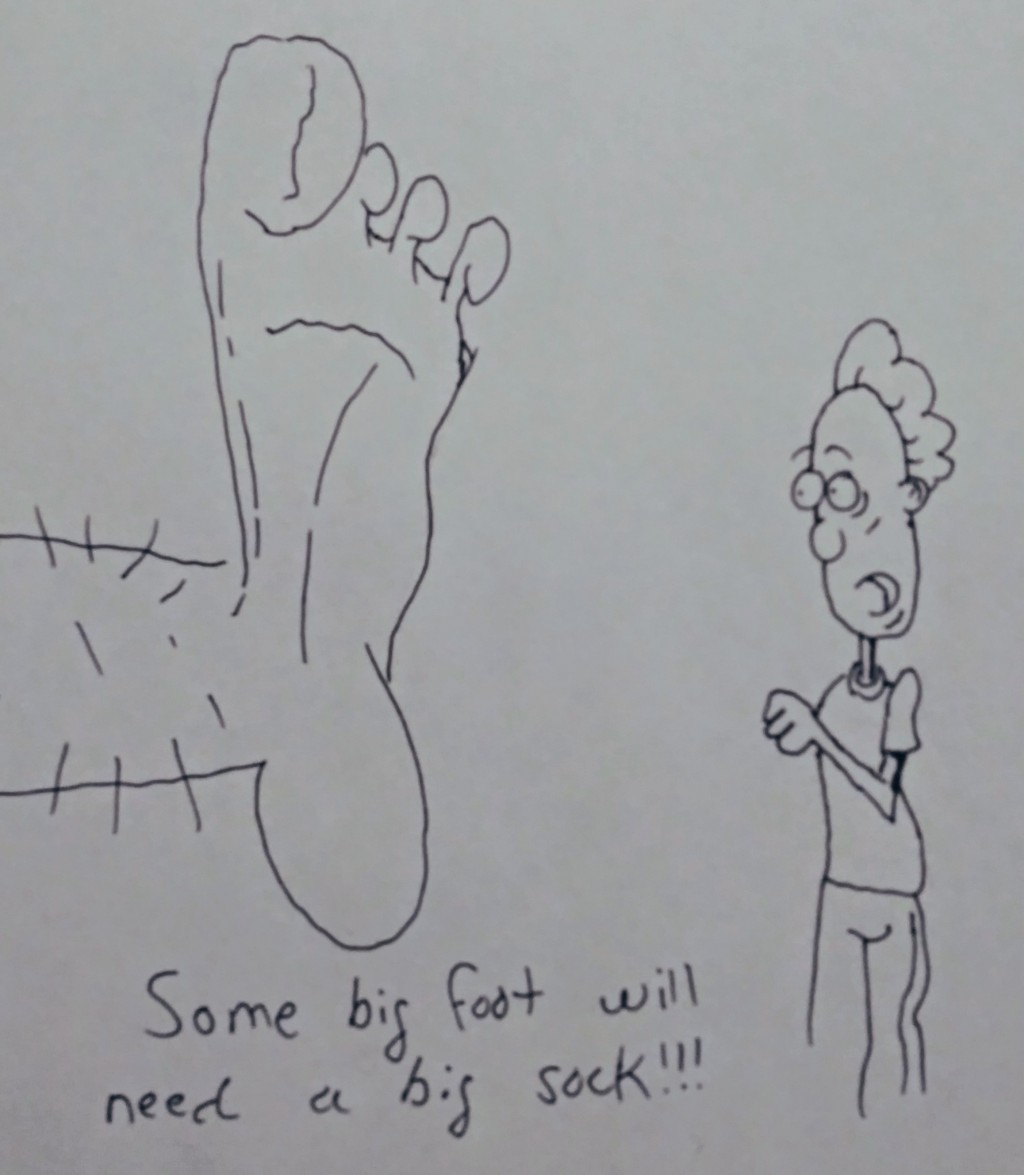 Some big foot will
need a big sock!!!